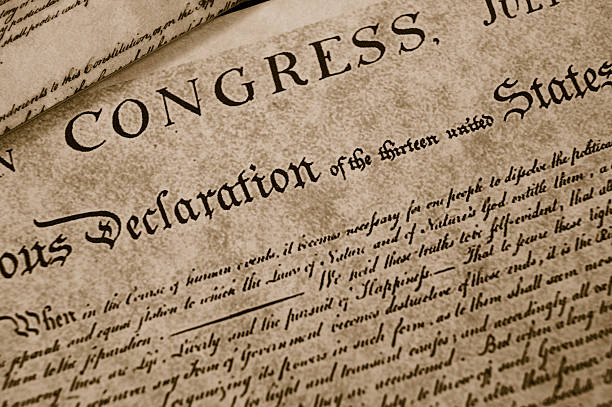 shall protect each
ndments to this Constitution, or, on the
N CONGRESS, JUL
ous Declaration of the thirteen united States
When in the Course of human events, it becomes necessary for one people to dissolve the political
separate and equal station to which the Laws of Nature and of Nature's God entitle them, a
them to the separation. We hold these truths to be self-evident, that all
among these are Life, Liberty and the pursuit of Happiness.— That to secure these righ
whenever any Form of Government becomes destructive of these ends, it is the Ri
organizing its powers in such form, as to them shall seem mos
for light and transient causes; and accordingly all
they are accustomed. But when a long
to throw off such Government